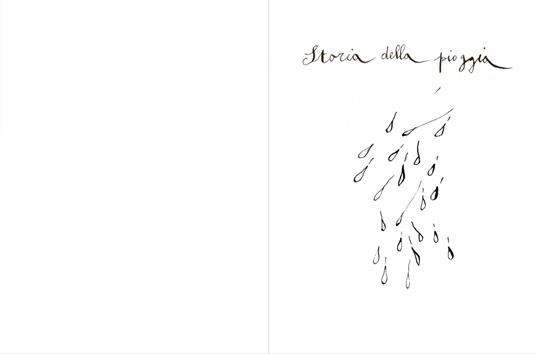 Storia della pioggia